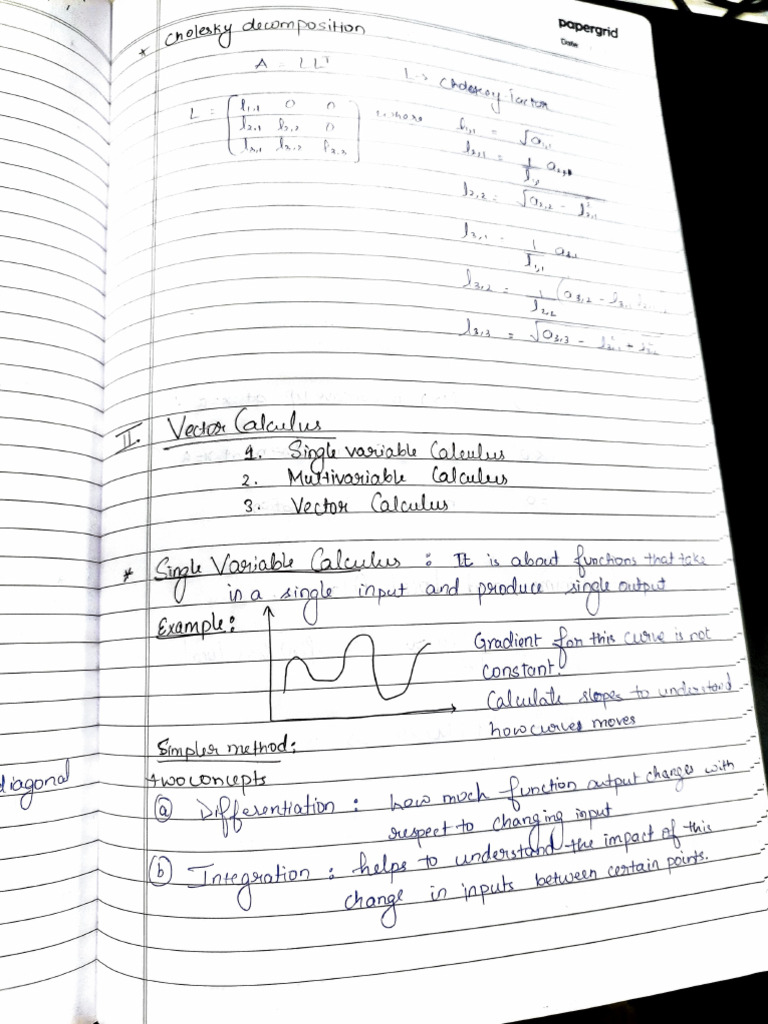 papergrid
Date
* Cholesky decomposition
A = LLᵀ
L → Cholesky factor
L = [ l₁,₁ 0 0
l₂,₁ l₂,₂ 0
l₃,₁ l₃,₂ l₃,₃ ] where
l₁,₁ = √a₁,₁
l₂,₁ = 1/l₁,₁ a₂,₁
l₂,₂ = √a₂,₂ - l²₂,₁
l₃,₁ = 1/l₁,₁ a₃,₁
l₃,₂ = 1/l₂,₂ (a₃,₂ - l₃,₁
l₃,₃ = √a₃,₃ -
II. Vector Calculus
1. Single variable Calculus
2. Multivariable Calculus
3. Vector Calculus
* Single Variable Calculus : It is about functions that take
in a single input and produce single output
Example:
Gradient for this curve is not
constant.
Calculate slopes to understand
how curves moves
Simpler method:
two concepts
diagonal
(a) Differentiation : how much function output changes with
respect to changing input
(b) Integration : helps to understand the impact of this
change in inputs between certain points.